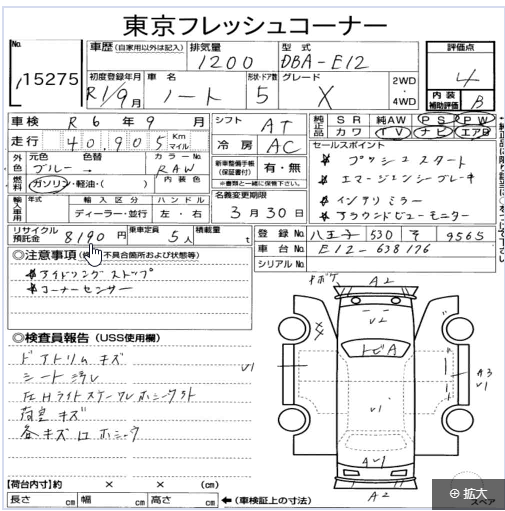 東京フレッシュコーナー
No.
15275
車歴(自家用以外は記入)
排気量
1200
型式
DBA-E12
評価点
4
初度登録年月
R1/9月
車名
ノート
形状・ドア数
5
グレード
X
2WD
・
4WD
内装
補助評価
B
車検
R 6 年 9 月
シフト
AT
純正品
SR
純AW
PS
PW
カワ
TV
ナビ
エアB
走行
40,905
Km
マイル
冷房
AC
セールスポイント
プッシュスタート
エマージェンシーブレーキ
インテリミラー
アラウンドビューモニター
外色
元色
色替
カラーNo.
ブルー→
RAW
新車整備手帳
(保証書付)
有・無
※書類と一緒に保管下さい。
燃料
ガソリン・軽油・( )
内装色
名義変更期限
3月30日
輸入車用
年式
輸入区分
ハンドル
ディーラー・並行
左・右
リサイクル
預託金
8190 円
乗車定員
5人
積載量
t
登録No.
八王子 530 そ 9565
車台No.
E12-638176
シリアルNo.
◎注意事項
不具合箇所および状態等)
アイドリングストップ
コーナーセンサー
◎検査員報告(USS使用欄)
ドアトリムキズ
シート汚レ
キズ
各キズ
A2
V2
トビA
V1
V1
V1
A2
【荷台内寸】約 × × (cm)
長さ cm 幅 cm 高さ cm ←(車検証上の寸法)
スペア
拡大